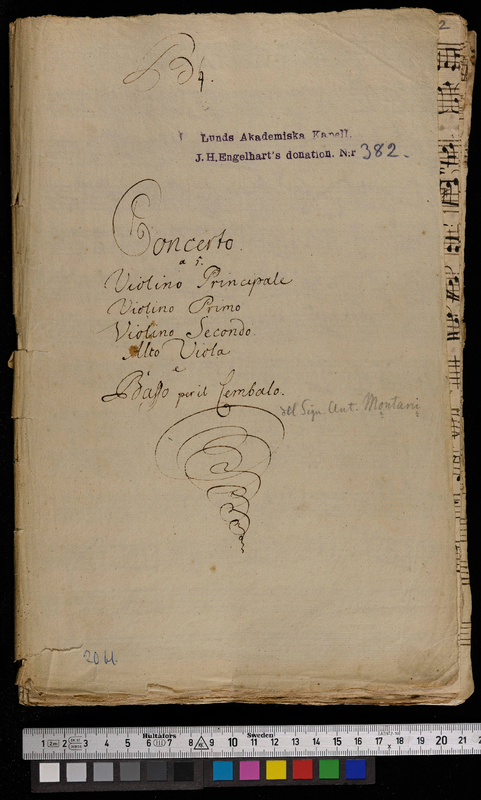 2
Lunds Akademiska Kapell.
J. H. Engelhart's donation. N:r 382.
Concerto.
a 5.
Violino Principale
Violino Primo
Violino Secondo.
Alto Viola
e
Basso per il Cembalo.
del Sign. Ant. Montani
Hultafors Sweden
1 2 3 4 5 6 7 8 9 10 11 12 13 14 15 16 17 18 19 20 21